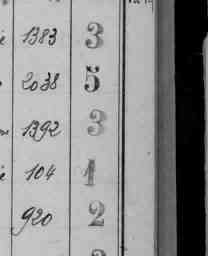 1383 3
2038 5
1392 3
104 1
920 2